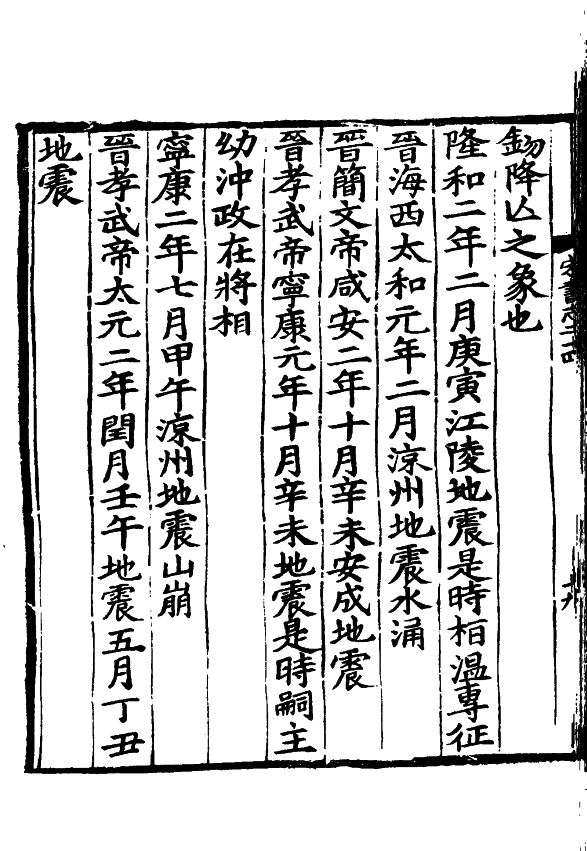 錫降亾之象也
隆和二年二月庚寅江陵地震是時桓溫專征
晉海西太和元年二月涼州地震水涌
晉簡文帝咸安二年十月辛未安成地震
晉孝武帝寧康元年十月辛未地震是時嗣主
幼沖政在將相
寧康二年七月甲午涼州地震山崩
晉孝武帝太元二年閏月壬午地震五月丁丑
地震